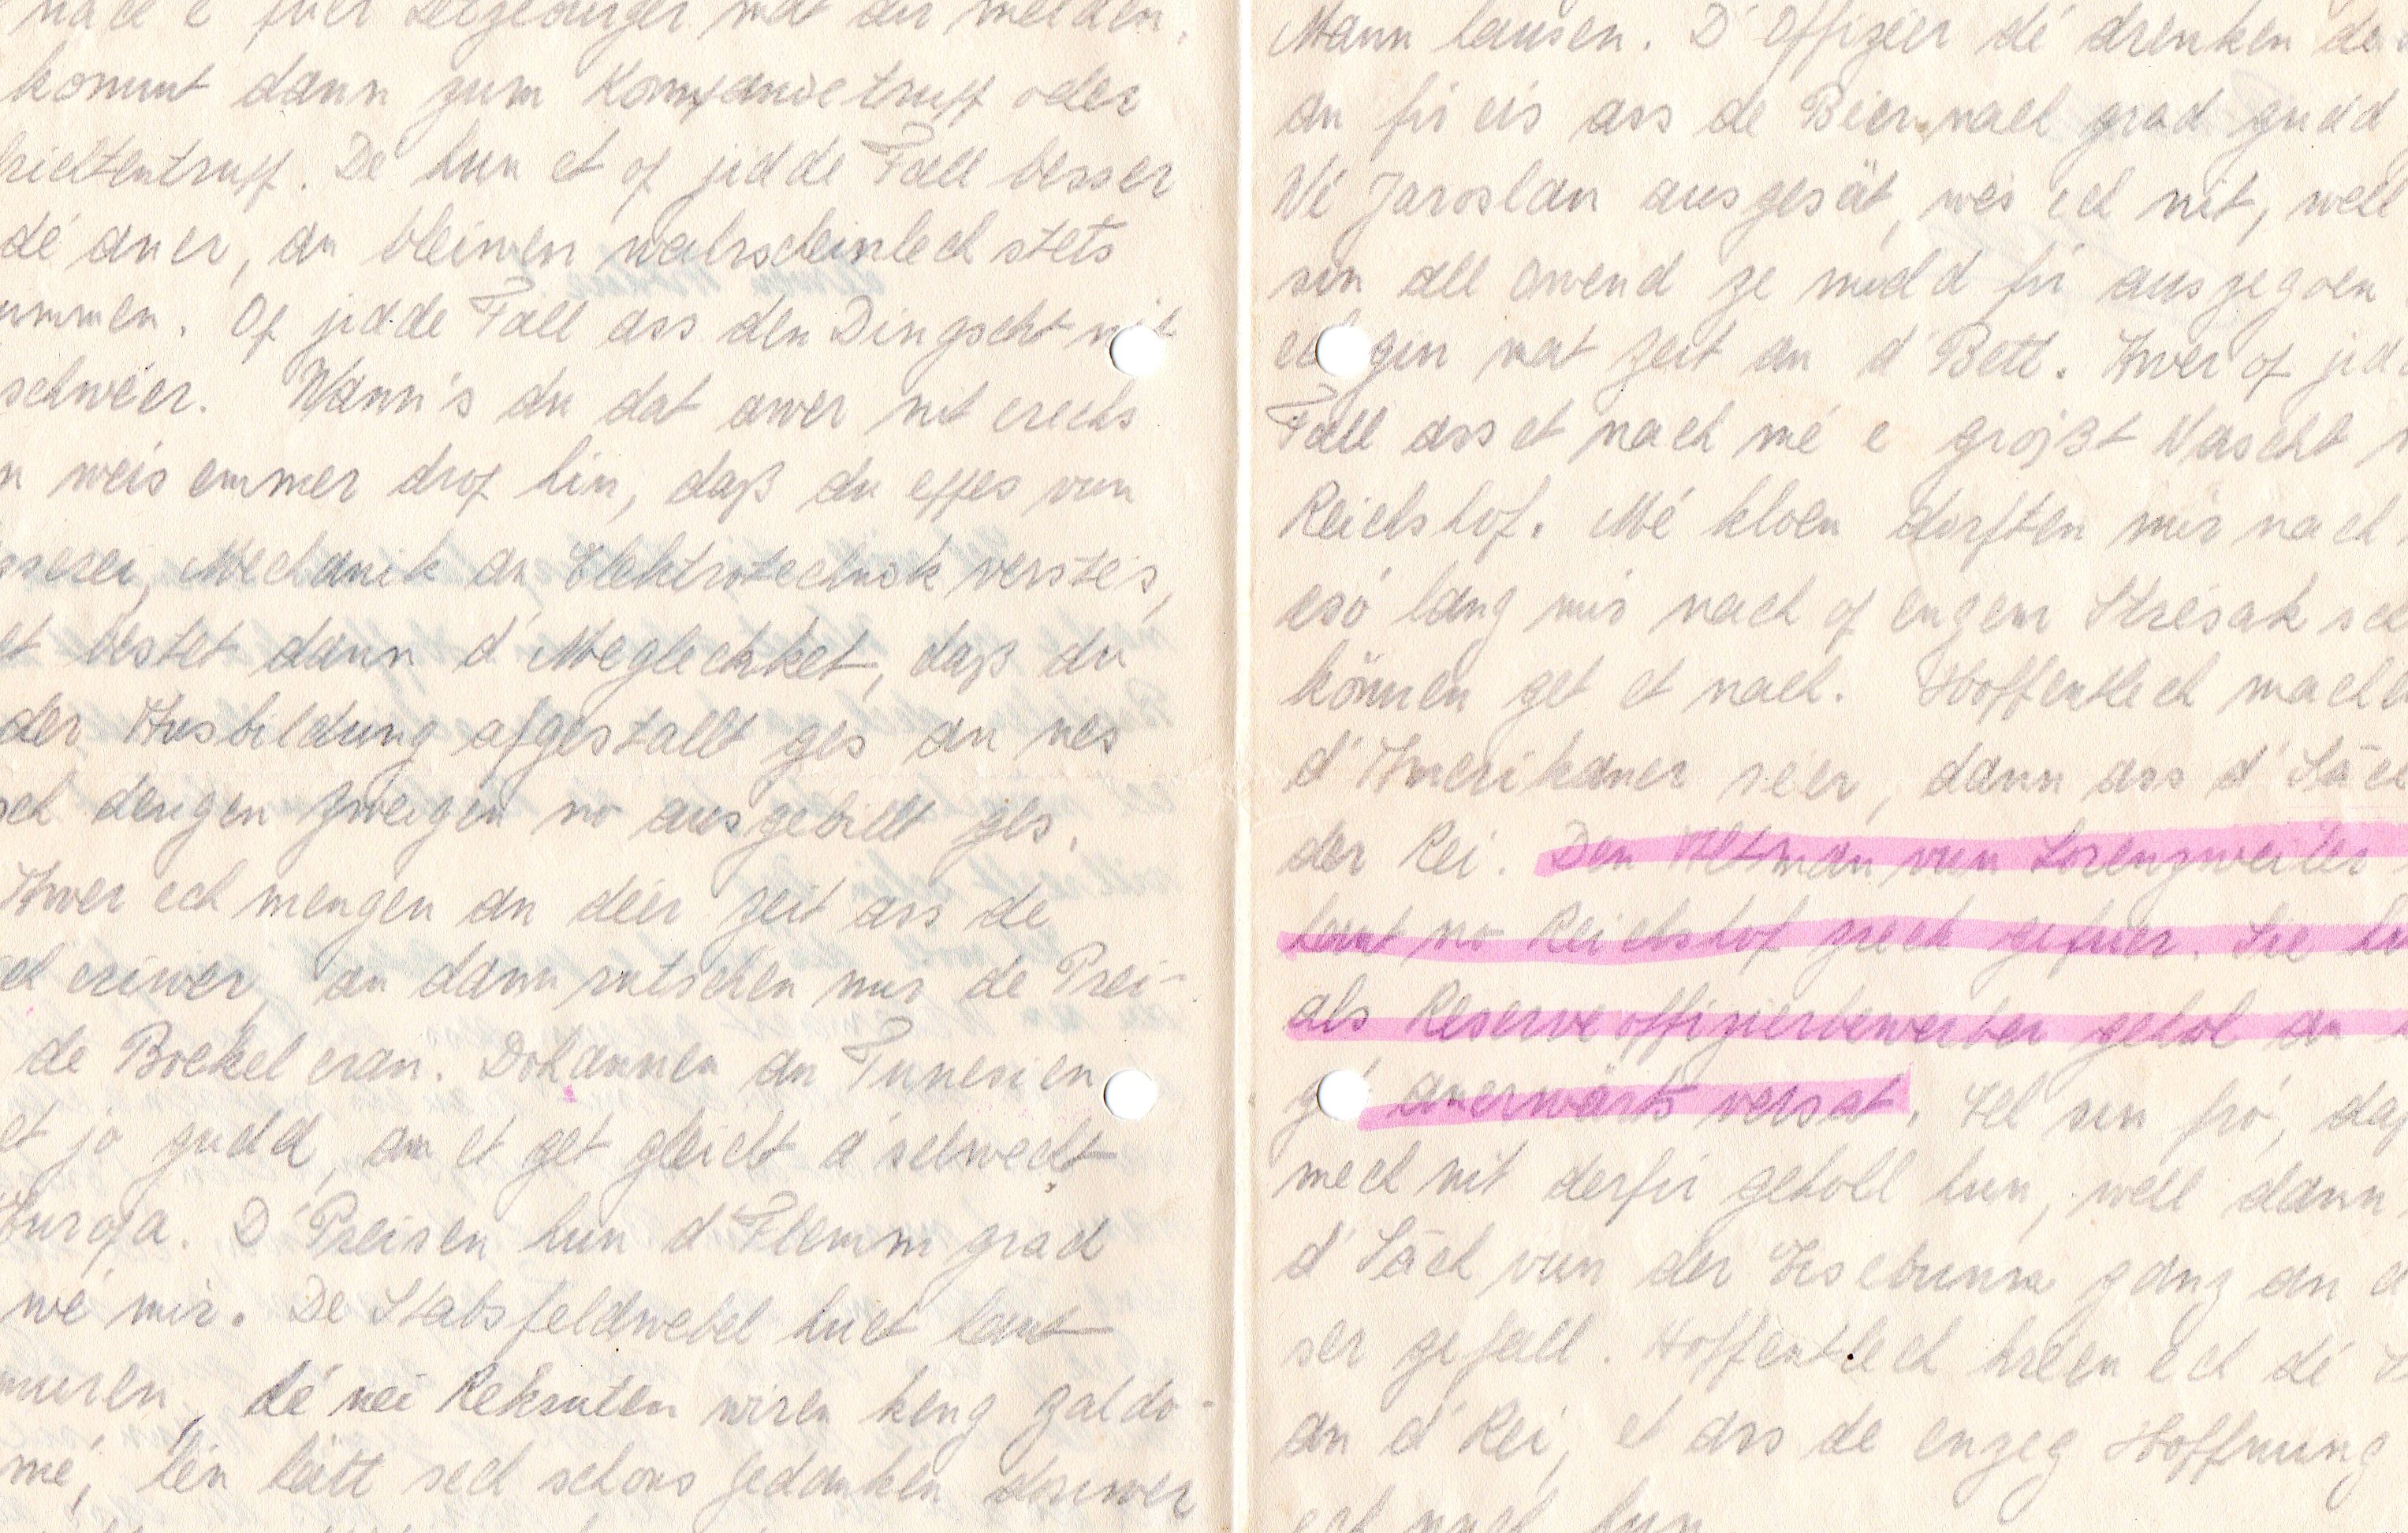 nach e fuer Letzeburger mat dir melden,
kommt dann zum Kompanietrupp oder
richtentrupp. De hun et of jidde Fall besser
dé aner, an bleiwen wahrscheinlech stets
ummen. Of jidde Fall ass den Dingscht nit
schwéer. Wann's du dat awer nit erechs
n weis emmer drof hin, daß du eppes vun
Mechanik an Elektrotechnik verstés,
et bestet dann d'Meglechket, daß du
der Ausbildung afgestallt ges an nes
ech dengen Zweigen no ausgebillt ges.
Awer ech mengen an déer Zeit ass de
eriwer, an dann rutschen mir de Prei-
de Bockel eran. Dohannen an Tunesien
et jo gudd, an et get gleicht d'selwecht
Europa. D'Preisen hun d'Flemm grad
wé mir. De Stabsfeldwebel huet laut
dé nei Rekruten wiren keng Zaldo-
mé, lén lätt sech schons Gedanken driwer
Mann lausen. D'Offizéier dé drenken de
an fir eis ass de Béier nach grad gudd
Wé Jaroslau ausgesät, wés ech nit, well
sin all Owend ze midd fir auszegoen
ech gin mat Zeit an d'Bett. Awer of jid
Fall ass et nach mé e grojßt Nascht
Reichshof. Mé kloen dorften mir nach
esó lang mir nach of engem Strésak
können get et nach. Hoffentlech mach
d'Amerikaner séier, dann ass d'Säch
der Rei. Den Altman vun Lorenzweiler
laut no Reichshof zreck gefuer. Sie hu
als Reserveoffizierbewerber gehol an
gé anerwärts versat. Ech sin fró, daß
mech nit derfir geholl hun, well dann
d'Säch vun der Eisebunn ganz an d
ser gefall. Hoffentlech kréen ech dé
an d'Rei, et ass de enzeg Hoffnung
ech nach hun